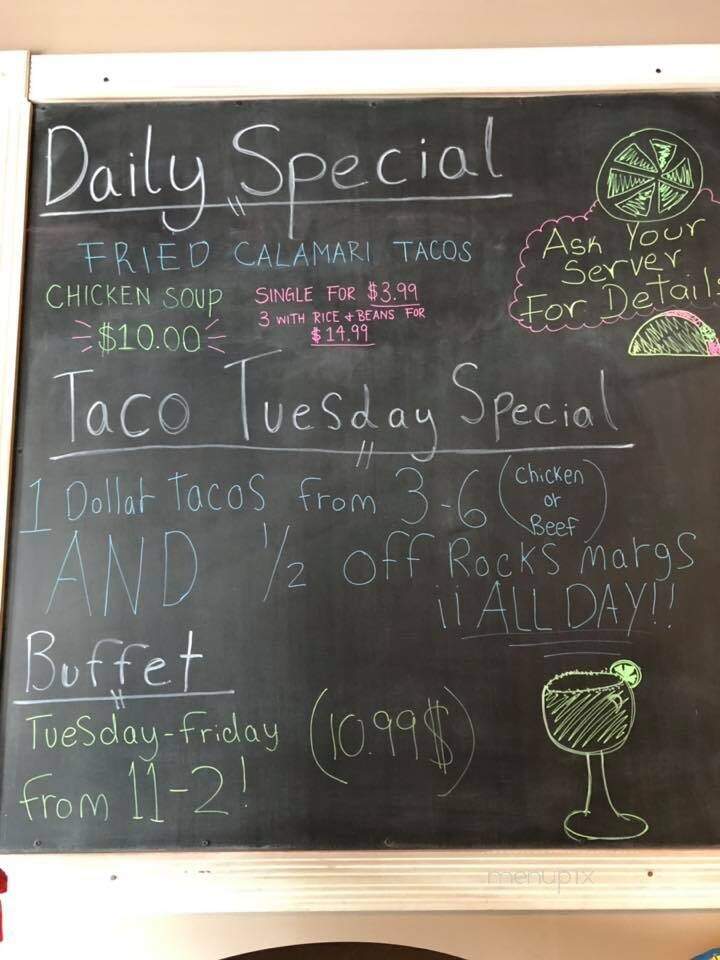 Daily Special
FRIED CALAMARI TACOS
CHICKEN SOUP
$10.00
SINGLE FOR $3.99
3 WITH RICE + BEANS FOR
$14.99
Ask Your
Server
For Details
Taco Tuesday Special
1 Dollar Tacos from 3-6 (Chicken
or
Beef)
AND 1/2 off Rocks margs
¡¡ALL DAY!!
Buffet
Tuesday-Friday (10.99$)
from 11-2!
menupix